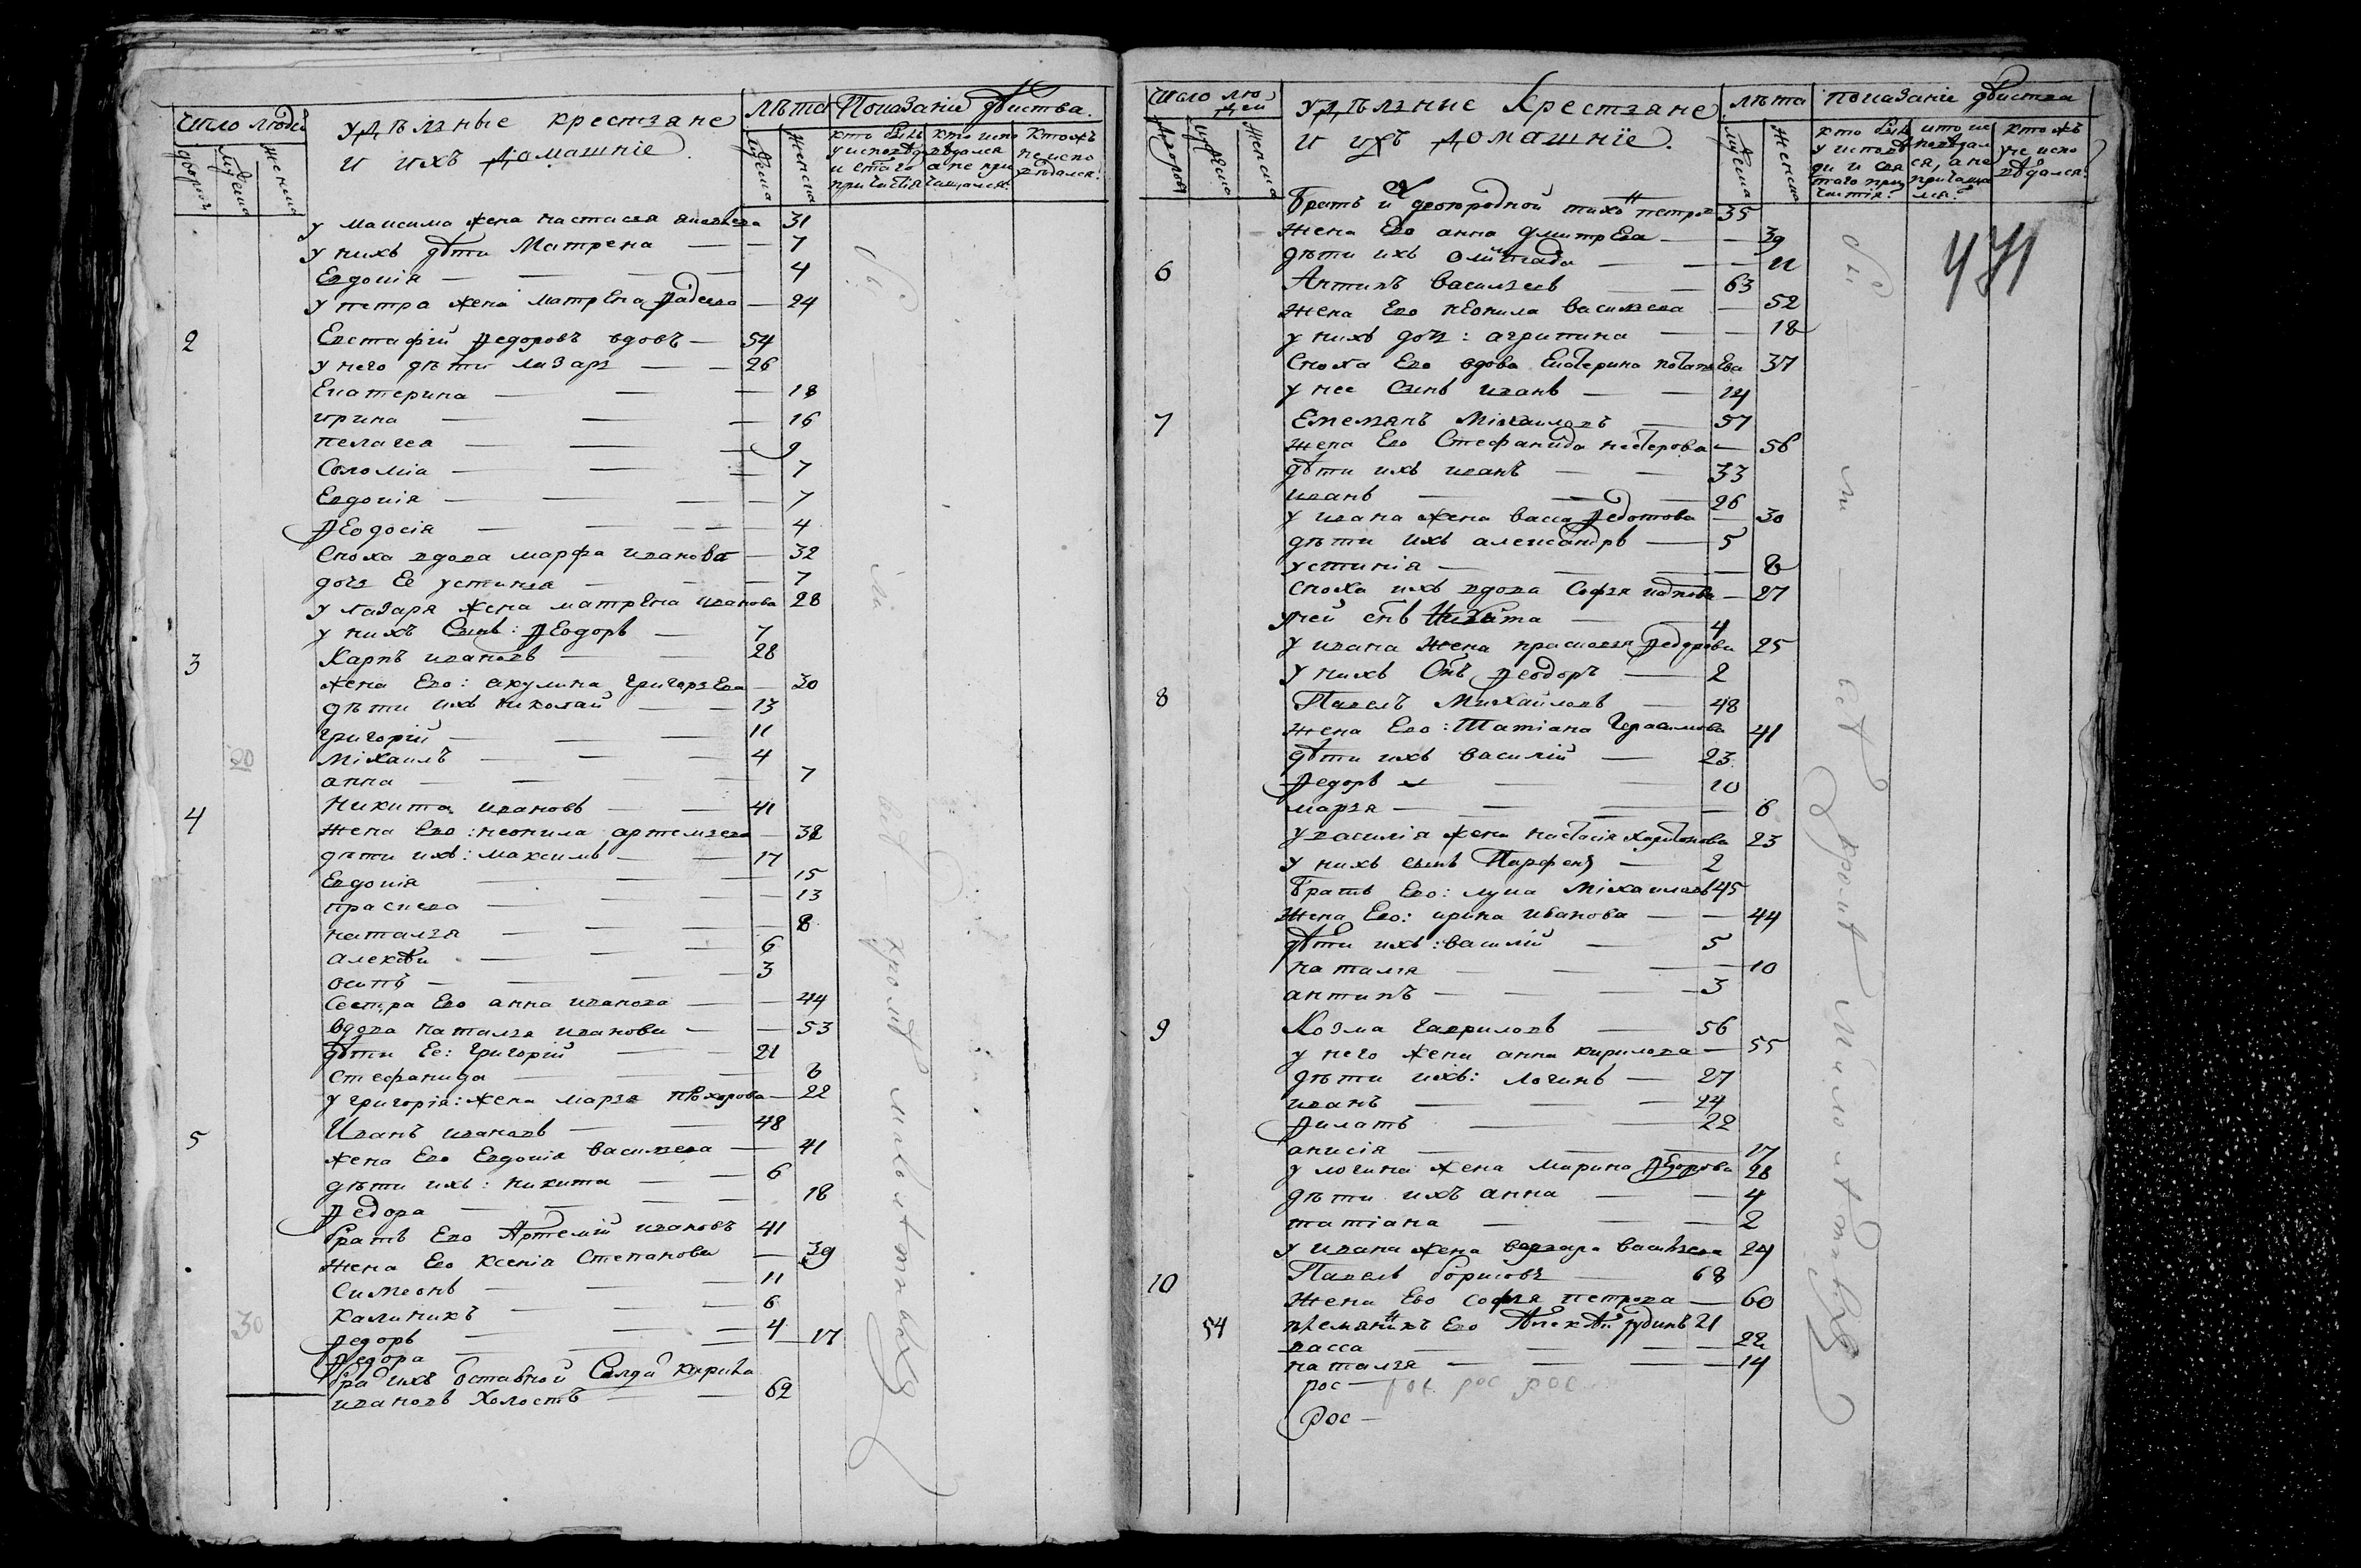 Число людей
дворов
мужеска
женска
удѣльные крестьяне
и ихъ домашніе
лѣта
мужеска
женска
Показаніе дѣйства.
кто былъ у исповѣди и святаго причастія
кто исповѣдался а не причащался
Кто жъ не исповѣдался
у максима жена настасья 31
у нихъ дѣти Матрена — 7
Евдокія — 4
у петра жена матрена фадеева — 24
2 Евстафій федоровъ вдовъ — 54
у него дѣти лазарь — 26
Екатерина — 18
ирина — 16
пелагея — 9
Соломіа — 7
Евдокія — 7
феодосія — 4
Сноха вдова марфа иванова — 32
дочь Ее устинья — 7
у лазаря жена матрена иванова 28
у нихъ Сынъ: феодоръ — 7
3 Карпъ ивановъ — 28
жена Его: акулина григорьева — 30
дѣти ихъ николай — 13
григорій — 11
20 міхаилъ — 4
анна — 7
4 Никита ивановъ — 41
жена Его: неонила артемьева — 38
дѣти ихъ: максимъ — 17
Евдокія — 15
прасковья — 13
наталья — 8
алексѣй — 6
осипъ — 3
Сестра Его анна иванова — 44
вдова наталья иванова — 53
дѣти Ее: григорій — 21
стефанида — 8
у григорія: жена марья прохорова — 22
5 Иванъ ивановъ — 48
жена Его Евдокія васильева — 41
дѣти ихъ: никита — 6
федора — 18
братъ Его Артемій ивановъ 41
жена Его Ксенія Степанова — 39
Симеонъ — 11
30 Калиникъ — 6
федоръ — 4
федора — 17
бра ихъ оставной Салда кирила
ивановъ Холостъ — 62
Бы — ли — всѣ кромѣ малолѣтныхъ
Число людей
дворов
мужеска
женска
удѣльные Крестьяне
и ихъ домашніе.
лѣта
мужеска
женска
показаніе дѣйства
кто былъ у исповѣди и святаго причастія?
кто исповѣдался, а не причащался?
кто жъ не исповѣдался?
471
Братъ и двоюродной тихонъ петровъ 35
жена Его анна дмитрева — 39
дѣти ихъ олимпіада — 11
6 Антипъ васильевъ — 63
жена Его неонила васильева — 52
у нихъ дочь: агрипина — 18
Сноха Его вдова Екатерина потапьева 37
у нее Сынъ иванъ — 14
7 Емельянъ Міхаиловъ — 57
жена Его Стефанида нестерова — 56
дѣти ихъ иванъ — 33
иванъ — 26
у ивана жена васса федотова — 30
дѣти ихъ александръ — 5
устинія — 8
сноха ихъ вдова Софья — 27
у ней снъ Никита — 4
у ивана жена прасковья федорова 25
у нихъ Снъ феодоръ — 2
8 Павелъ Михайловъ — 48
жена Его: Татіана Герасимова 41
дѣти ихъ василій — 23
федоръ — 10
марья — 6
у василія жена настасія харитонова 23
у нихъ сынъ Парфенъ — 2
Братъ Его: лука Міхаиловъ 45
жена Его: ирина иванова — 44
дѣти ихъ: василій — 5
наталья — 10
антипъ — 3
9 Козма гавриловъ — 56
у него жена анна кирилова — 55
дѣти ихъ: логинъ — 27
иванъ — 24
филатъ — 22
анисія — 17
у логина жена марина федорова 28
дѣти ихъ анна — 4
татіана — 2
у ивана жена варвара васильева 24
10 Павелъ борисовъ — 68
жена Его софья петрова — 60
54 племянникъ Его Алексѣй 21
васса — 22
наталья — 14
рос — рос рос рос
рос —
бы — ли — всѣ кромѣ малолѣтныхъ